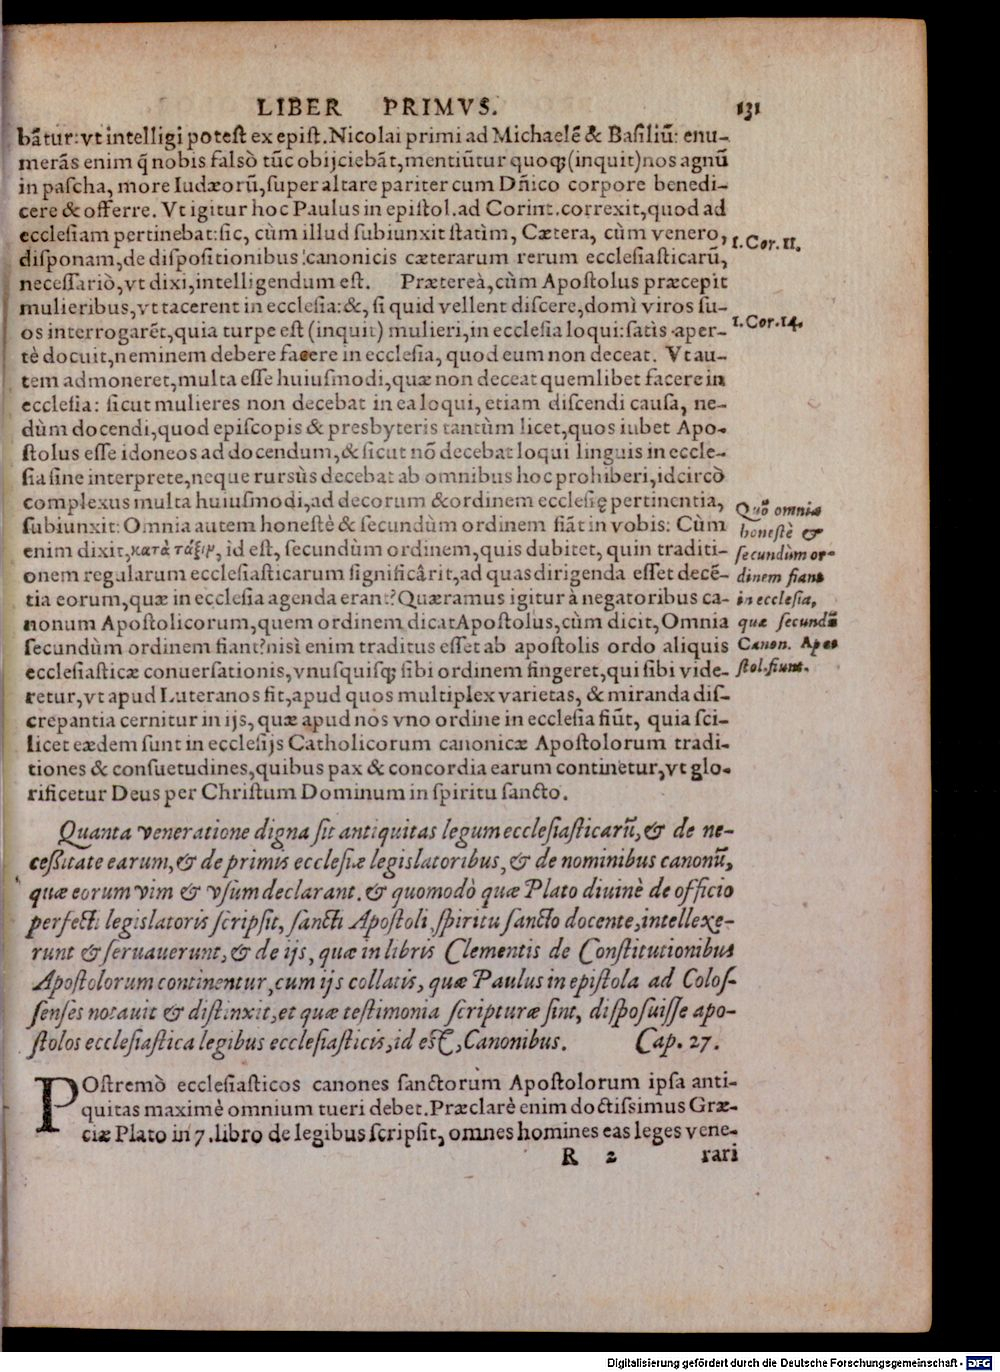 LIBER PRIMVS. 131
bãtur: vt intelligi potest ex epist. Nicolai primi ad Michaelẽ & Basiliũ: enu-
merãs enim q̃ nobis falsò tũc obijciebãt, mentiũtur quoq; (inquit) nos agnũ
in pascha, more Iudæorũ, super altare pariter cum Dñico corpore benedi-
cere & offerre. Vt igitur hoc Paulus in epistol. ad Corint. correxit, quod ad
ecclesiam pertinebat: sic, cùm illud subiunxit statìm, Cætera, cùm venero,
1. Cor. 11.
disponam, de dispositionibus canonicis cæterarum rerum ecclesiasticarũ,
necessariò, vt dixi, intelligendum est. Prætereà, cùm Apostolus præcepit
mulieribus, vt tacerent in ecclesia: &, si quid vellent discere, domì viros su-
os interrogarẽt, quia turpe est (inquit) mulieri, in ecclesia loqui: satìs aper-
1. Cor. 14.
tè docuit, neminem debere facere in ecclesia, quod eum non deceat. Vt au-
tem admoneret, multa esse huiusmodi, quæ non deceat quemlibet facere in
ecclesia: sicut mulieres non decebat in ea loqui, etiam discendi causa, ne-
dùm docendi, quod episcopis & presbyteris tantùm licet, quos iubet Apo-
stolus esse idoneos ad docendum, & sicut nõ decebat loqui linguis in eccle-
sia sine interprete, neque rursùs decebat ab omnibus hoc prohiberi, idcircò
complexus multa huiusmodi, ad decorum & ordinem ecclesię pertinentia,
subiunxit: Omnia autem honestè & secundùm ordinem fiãt in vobis: Cùm
enim dixit, κατὰ τάξιν, id est, secundùm ordinem, quis dubitet, quin traditi-
onem regularum ecclesiasticarum significârit, ad quas dirigenda esset decẽ-
tia eorum, quæ in ecclesia agenda erant? Quæramus igitur à negatoribus ca-
nonum Apostolicorum, quem ordinem dicat Apostolus, cùm dicit, Omnia
secundùm ordinem fiant? nisì enim traditus esset ab apostolis ordo aliquis
ecclesiasticæ conuersationis, vnusquisq; sibi ordinem fingeret, qui sibi vide-
retur, vt apud Luteranos fit, apud quos multiplex varietas, & miranda dis-
crepantia cernitur in ijs, quæ apud nos vno ordine in ecclesia fiũt, quia sci-
licet eædem sunt in ecclesijs Catholicorum canonicæ Apostolorum tradi-
tiones & consuetudines, quibus pax & concordia earum continetur, vt glo-
rificetur Deus per Christum Dominum in spiritu sancto.
Quõ omnia
honestè &
secundùm or-
dinem fiant
in ecclesia,
quæ secundũ
Canon. Apo
stol. fiunt.
Quanta veneratione digna sit antiquitas legum ecclesiasticarũ, & de ne-
cessitate earum, & de primis ecclesiæ legislatoribus, & de nominibus canonũ,
quæ eorum vim & vsum declarant. & quomodò quæ Plato diuinè de officio
perfecti legislatoris scripsit, sancti Apostoli, spiritu sancto docente, intellexe-
runt & seruauerunt, & de ijs, quæ in libris Clementis de Constitutionibus
Apostolorum continentur, cum ijs collatis, quæ Paulus in epistola ad Colos-
senses notauit & distinxit, et quæ testimonia scripturæ sint, disposuisse apo-
stolos ecclesiastica legibus ecclesiasticis, id est, Canonibus. Cap. 27.
POstremò ecclesiasticos canones sanctorùm Apostolorum ipsa anti-
quitas maximè omnium tueri debet. Præclarè enim doctissimus Græ-
ciæ Plato in 7. libro de legibus scripsit, omnes homines eas leges vene-
R 2 rari
Digitalisierung gefördert durch die Deutsche Forschungsgemeinschaft - DFG